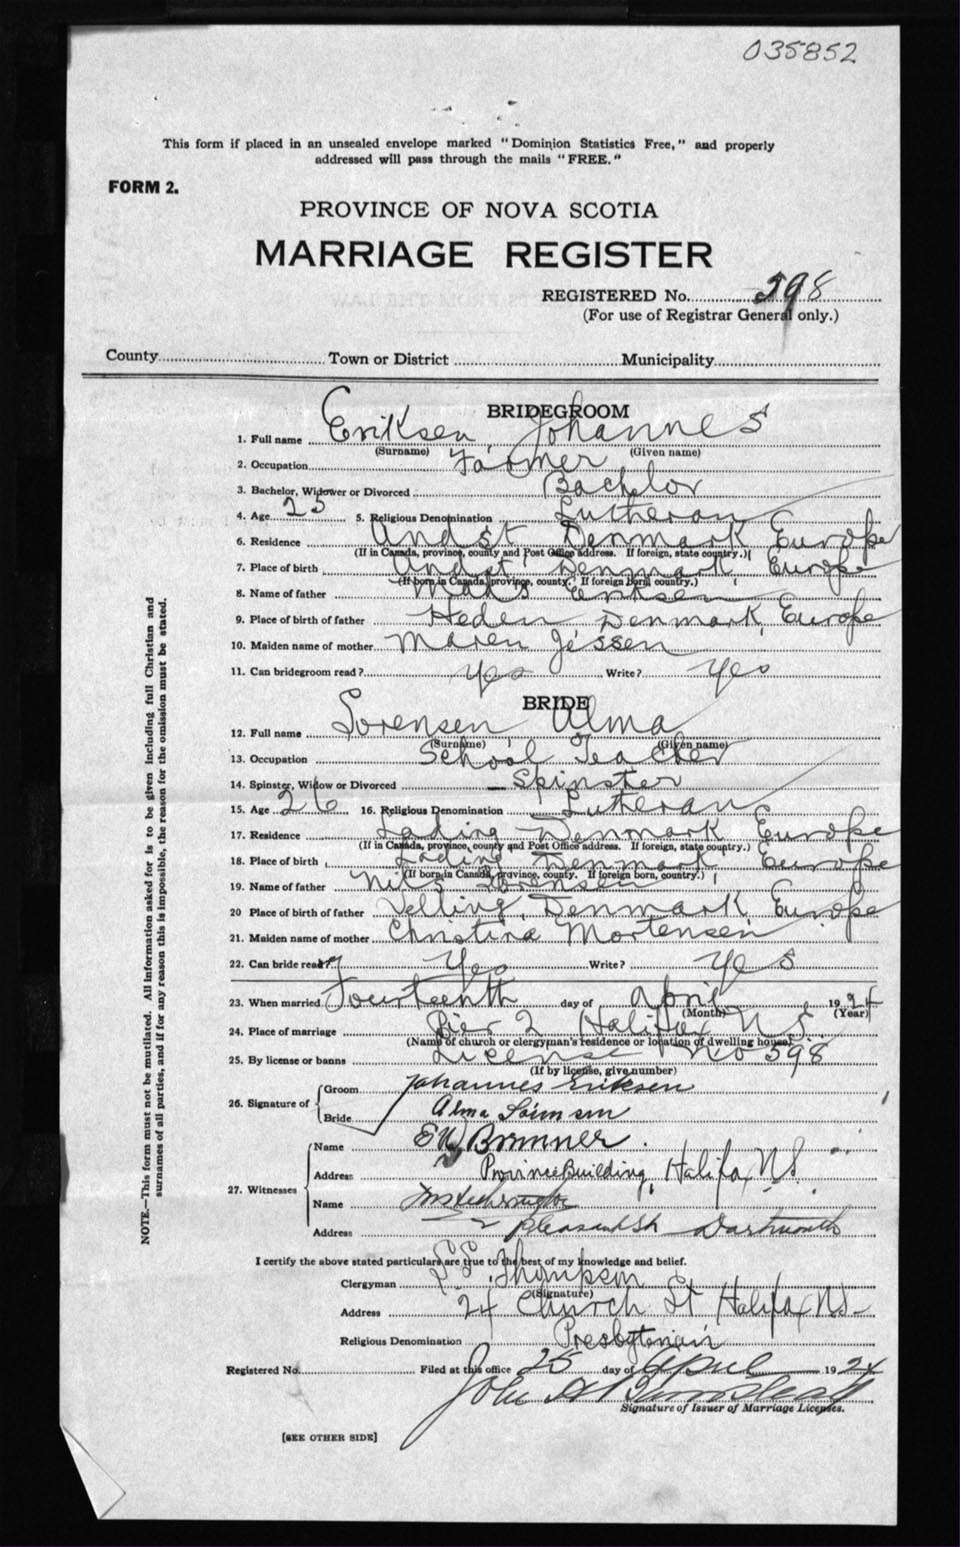 035852
This form if placed in an unsealed envelope marked "Dominion Statistics Free," and properly
addressed will pass through the mails "FREE."
FORM 2.
PROVINCE OF NOVA SCOTIA
MARRIAGE REGISTER
REGISTERED No. 598
(For use of Registrar General only.)
County Town or District Municipality
BRIDEGROOM
1. Full name Eriksen, Johannes
(Surname) (Given name)
2. Occupation Farmer
3. Bachelor, Widower or Divorced Bachelor
4. Age 25 5. Religious Denomination Lutheran
6. Residence Andst Denmark Europe
(If in Canada, province, county and Post Office address. If foreign, state country.)
7. Place of birth Andst, Denmark Europe
(If born in Canada, province, county. If foreign born, country.)
8. Name of father Eriksen
9. Place of birth of father Heden Denmark, Europe
10. Maiden name of mother Maren Jessen
11. Can bridegroom read? yes Write? yes
BRIDE
12. Full name Sorensen Alma
(Surname) (Given name)
13. Occupation School Teacher
14. Spinster, Widow or Divorced Spinster
15. Age 26 16. Religious Denomination Lutheran
17. Residence Lading Denmark Europe
(If in Canada, province, county and Post Office address. If foreign, state country.)
18. Place of birth Lading Denmark Europe
(If born in Canada, province, county. If foreign born, country.)
19. Name of father Nils Sorensen
20 Place of birth of father Velling, Denmark, Europe
21. Maiden name of mother Christina Mortensen
22. Can bride read? Yes Write? Yes
23. When married Fourteenth day of April 1924
(Month) (Year)
24. Place of marriage Pier 2 Halifax N S.
(Name of church or clergyman's residence or location of dwelling house)
25. By license or banns License No 598
(If by license, give number)
26. Signature of Groom Johannes Eriksen
Bride Alma
27. Witnesses Name
Address Province Building, Halifax N.S.
Name
Address Pleasant St Dartmouth
I certify the above stated particulars are true to the best of my knowledge and belief.
Clergyman Thompson
(Signature)
Address 24 Church St Halifax N.S.
Religious Denomination Presbyterian
Registered No. Filed at this office 25 day of April 1924
John
Signature of Issuer of Marriage Licenses.
[SEE OTHER SIDE]
NOTE.—This form must not be mutilated. All information asked for is to be given including full Christian and
surnames of all parties, and if for any reason this is impossible, the reason for the omission must be stated.